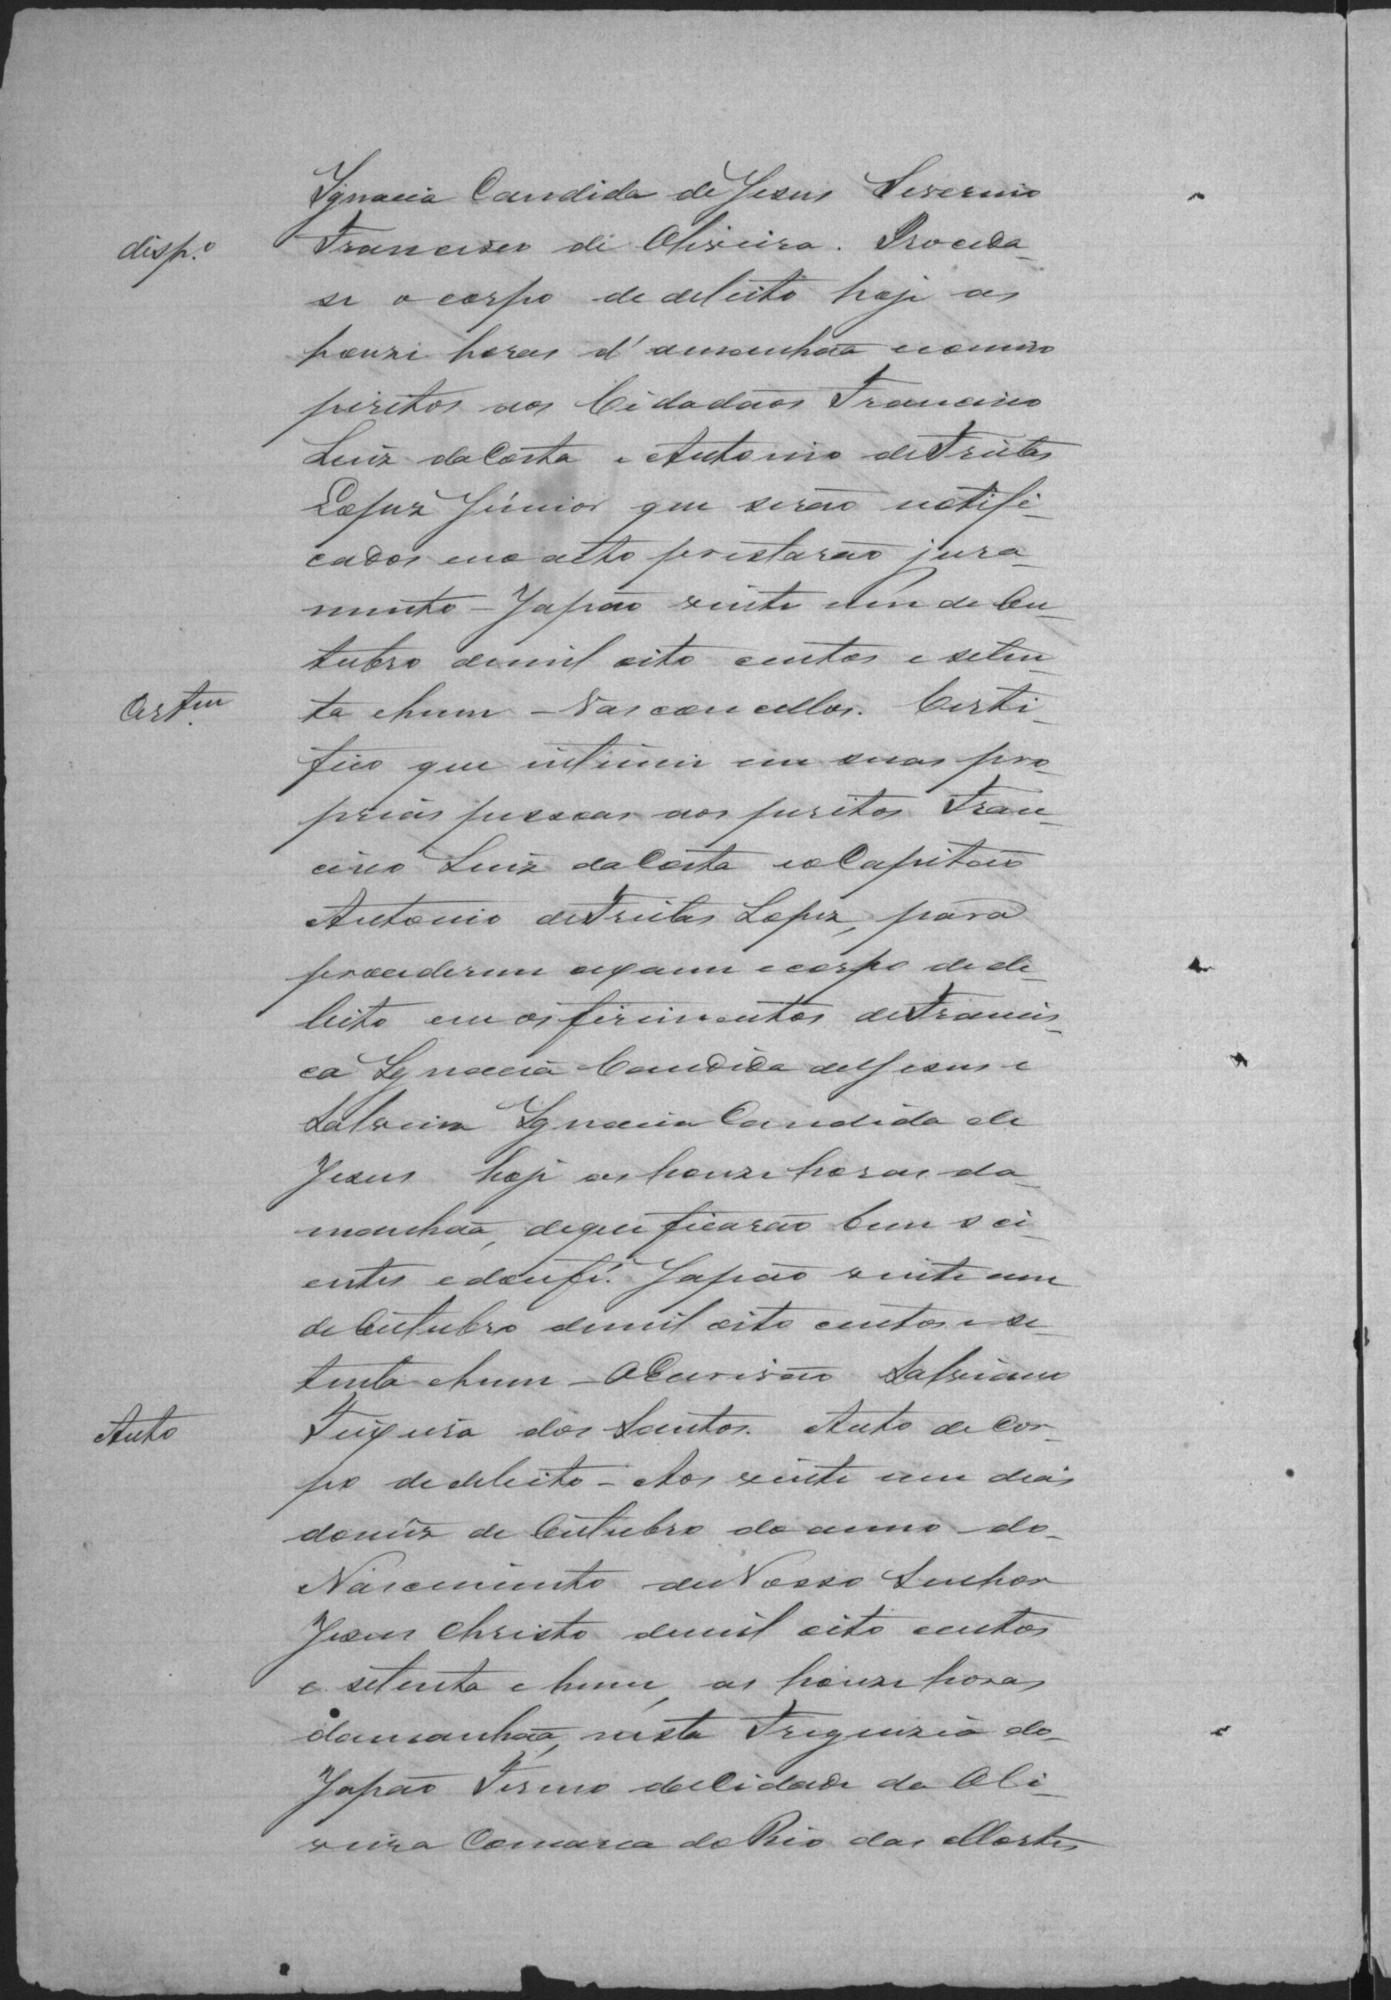 Ignacia Candida de Jesus Severino
disp.o
Francisco de Oliveira. Proceda-
se o corpo de delicto hoje as
honze horas d'amanhaã nomeio
peritos aos Cidadãos Francisco
Luiz da Costa e Antonio de Freitas
Lopez Junior que serão notifi-
cados no acto prestarão jura-
mento - Japão vinte um de Ou-
tubro de mil oito centos e seten-
Certm
ta ehum - Vasconcellos. Certi-
fico que intimei em suas pro-
prias pessoas aos peritos Fran-
cisco Luiz da Costa e o Capitão
Antonio de Freitas Lopez, para
procederem exame e corpo de de-
licto em os ferimentos de Francis-
ca Ignacia Candida de Jesus e
Salvina Ignacia Candida de
Jesus hoje as honze horas da
manhaã, de que ficarão bem sci-
entes e dou fé. Japão vinte um
de Outubro de mil oito centos e se-
tenta ehum - O Escrivão Salviano
Auto
Teixeira dos Santos. Auto de Cor-
po de delicto - Aos vinte um dias
do mez de Outubro do anno do
Nascimento de Nosso Senhor
Jesus Christo de mil oito centos
e setenta e hum, as honze horas
da manhaã, nesta Freguezia do
Japão Termo da Cidade da Oli-
veira Comarca do Rio das Mortes